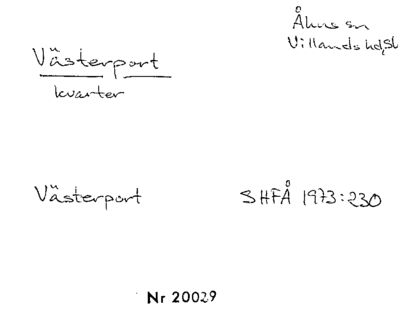 Åhus sn
Villands hd, Sk
Västerport
kvarter
Västerport SHFÅ 1973:230
Nr 20029